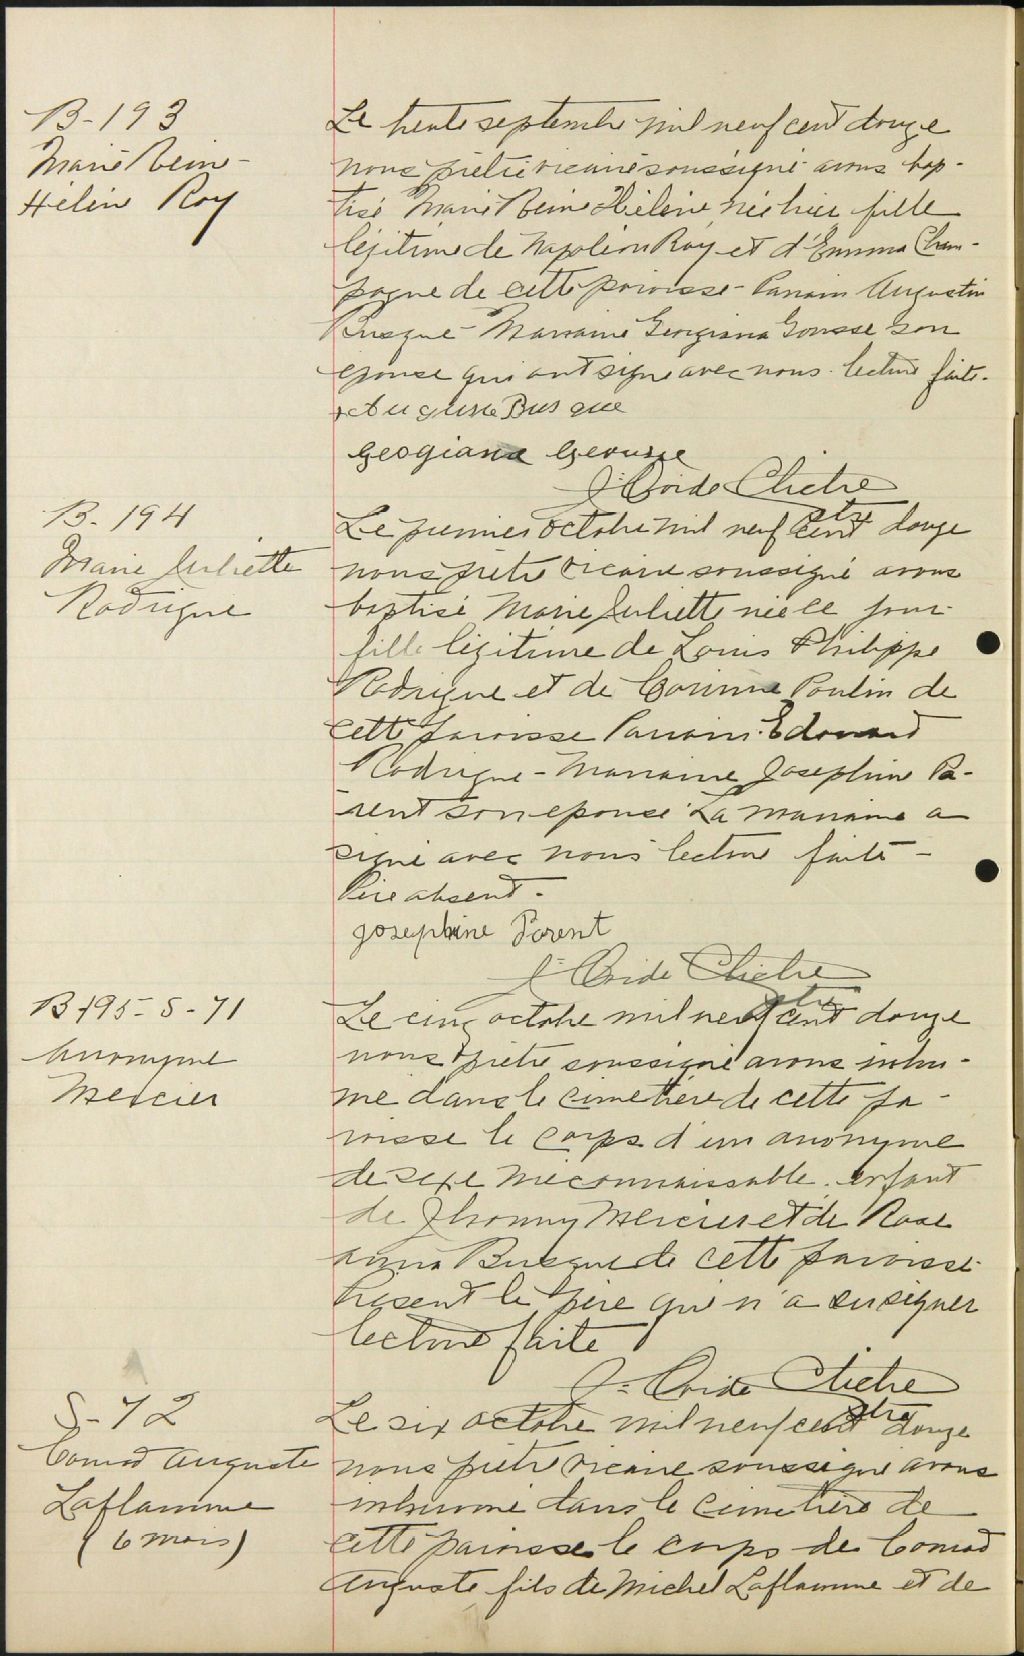 B-193
Marie Reine-
Hélène Roy
Le trente septembre mil neuf cent douze
nous prêtre vicaire soussigné avons bap-
tisé Marie Reine Hélène née hier fille
légitime de Napoléon Roy et d'Emma Cham-
pagne de cette paroisse - Parrain Augustin
Busque - Marraine Georgiana Gousse son
épouse qui ont signé avec nous. lecture faite.
Auguste Busque
Geogiana Gousse
J. Ovide Cliche
ptre
B. 194
Marie Juliette
Rodrigue
Le premier octobre mil neuf cent douze
nous prêtre vicaire soussigné avons
baptisé Marie Juliette née ce jour
fille légitime de Louis Philippe
Rodrigue et de Corinne Poulin de
cette paroisse Parrain. Edouard
Rodrigue - Marraine Josephine Pa-
rent son epouse La marraine a
signé avec nous lecture faite -
Père absent.
Josephine Parent
J. Ovide Cliche
ptre
B-195 - S-71
Anonyme
Mercier
Le cinq octobre mil neuf cent douze
nous prêtre soussigné avons inhu-
mé dans le cimetière de cette pa-
roisse le corps d'un anonyme
de sexe méconnaissable. enfant
de Jhonny Mercier et de Rose
anna Busque de cette paroisse
Présent le père qui n'a su signer
lecture faite
J. Ovide Cliche
ptre
S-72
Conrad Auguste
Laflamme
(6 mois)
Le six octobre mil neuf cent douze
nous prêtre vicaire soussigné avons
inhumé dans le cimetière de
cette paroisse le corps de Conrad
Auguste fils de Michel Laflamme et de